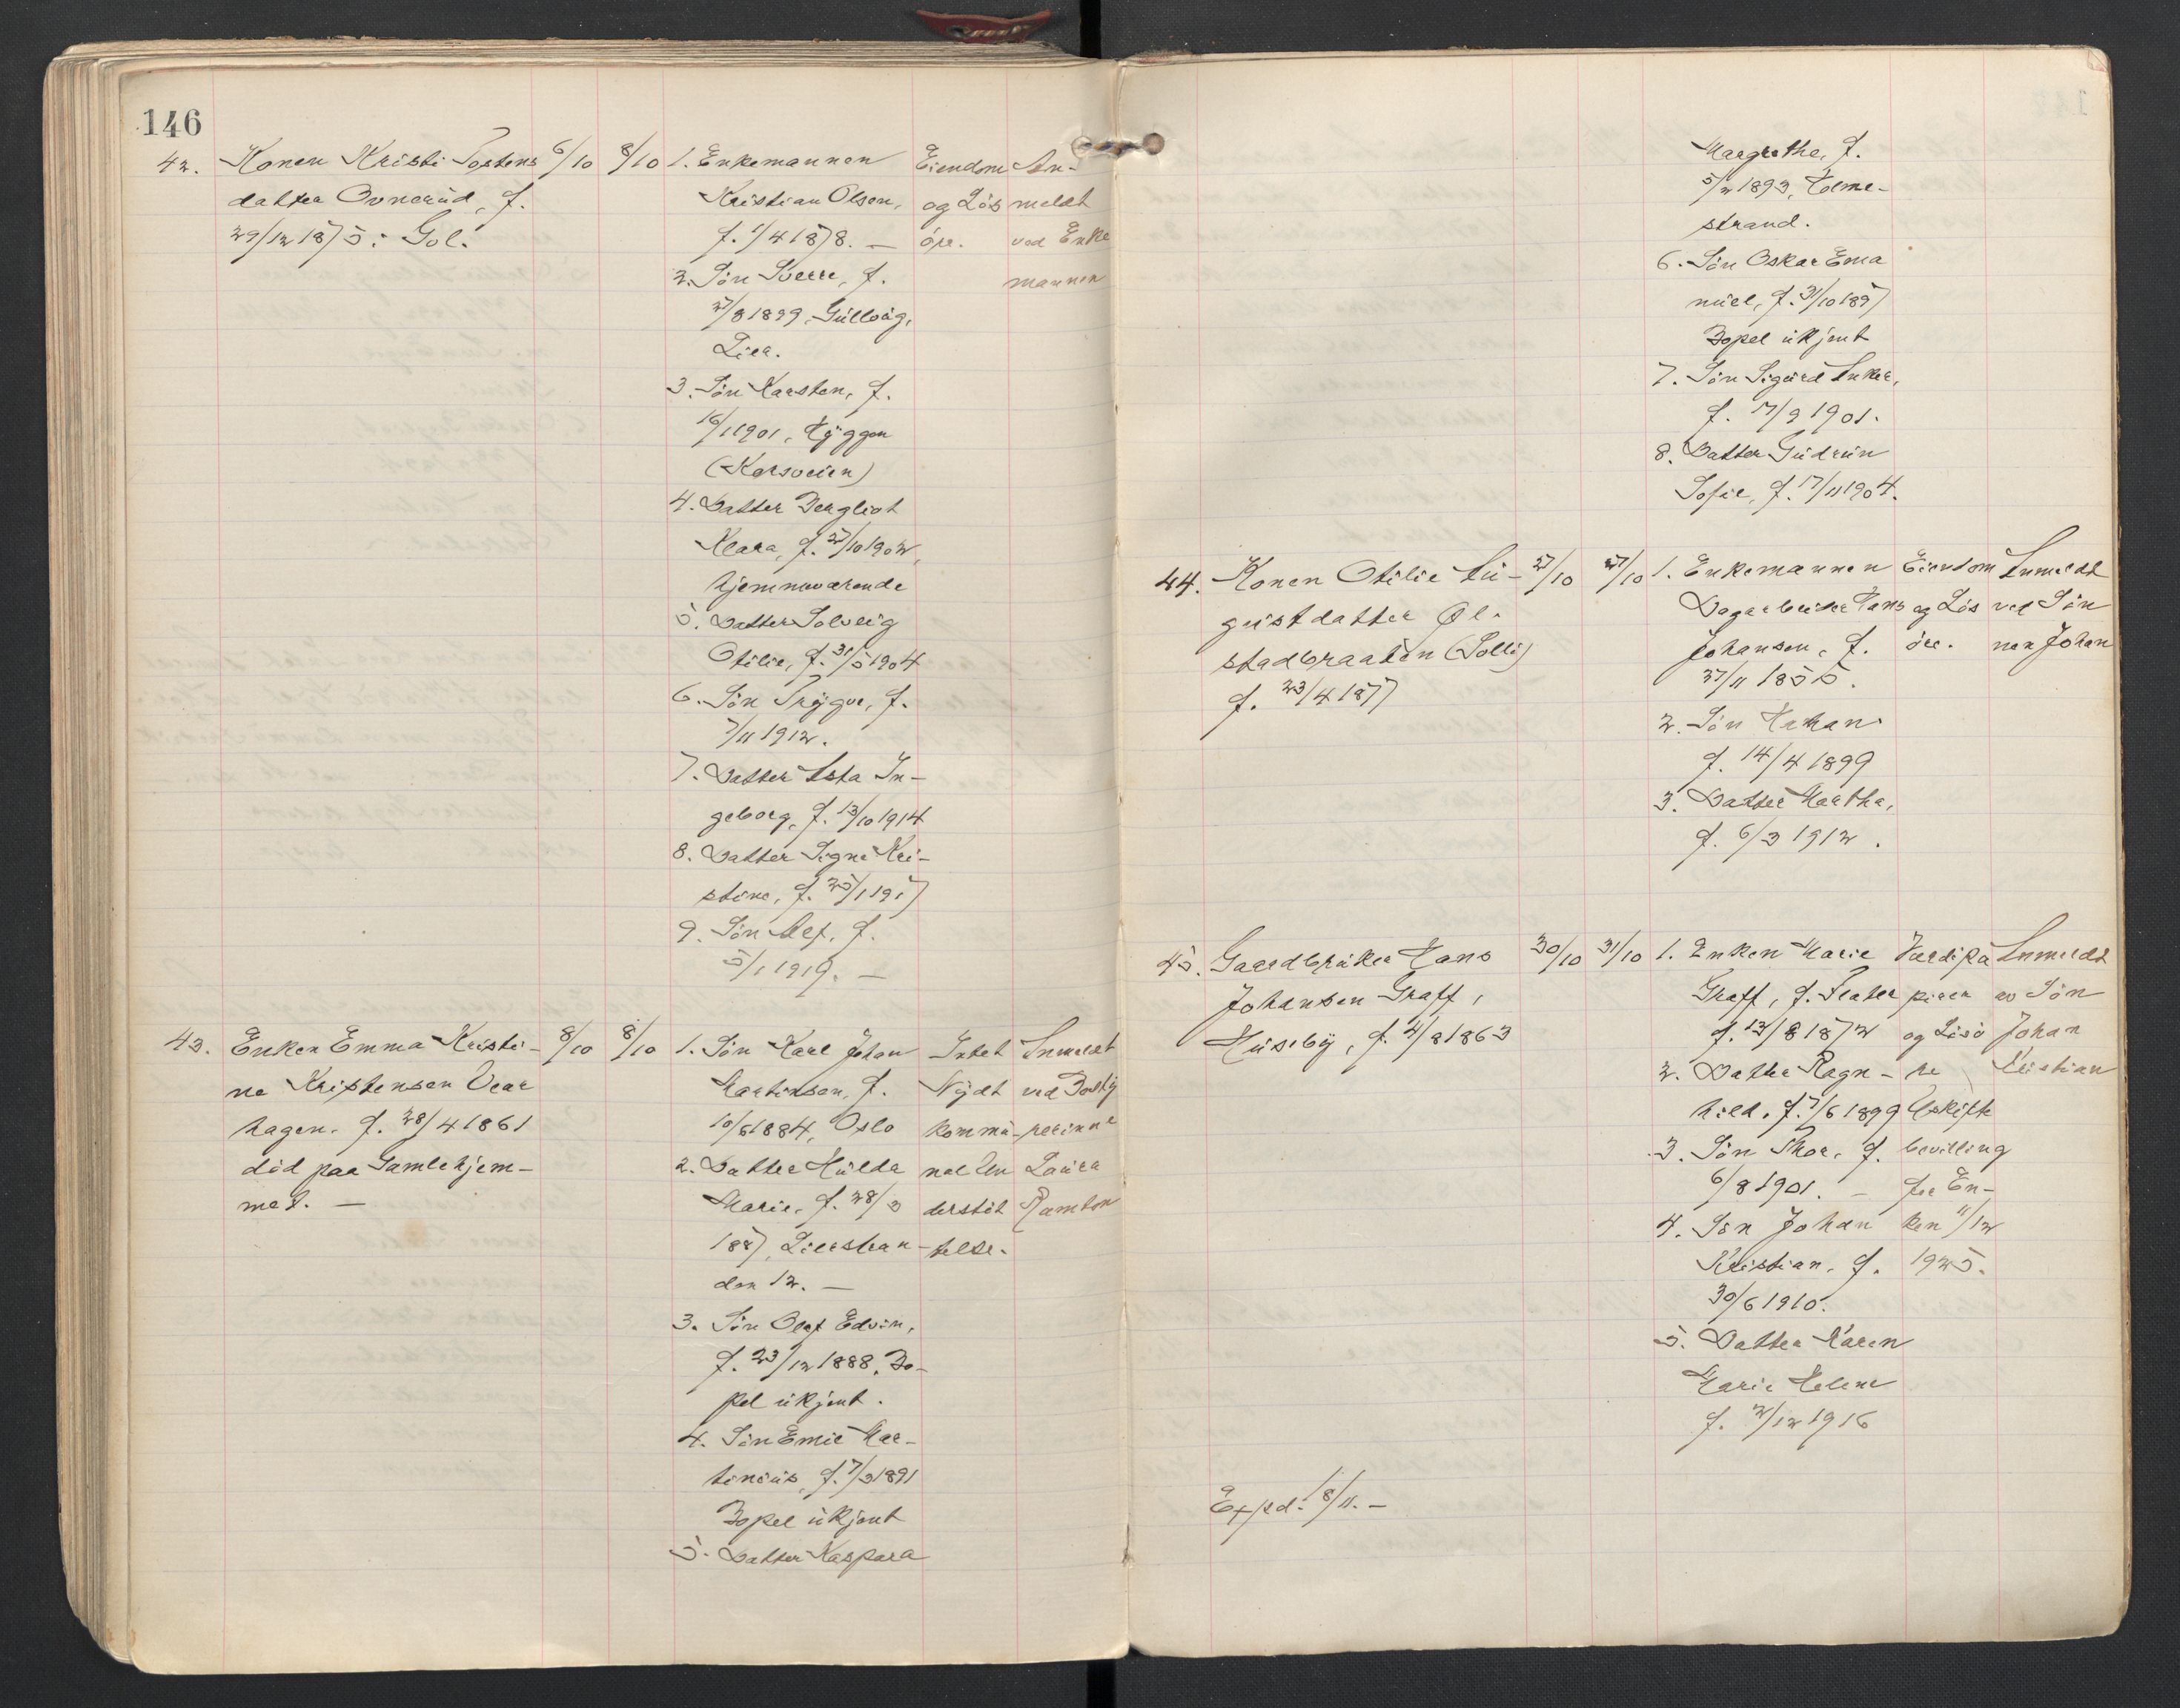 146
42. Konen Kristi Tostens
datter Ovnerud, f.
29/12 1875 i Gol.
6/10
8/10
1. Enkemannen
Kristian Olsen,
f. 1/4 1878. —
2. Søn Sverre, f.
27/8 1899, Gullaug,
Lier.
3. Søn Karsten, f.
16/1 1901, Hyggen
(Korsveien)
4. Datter Bergliot
Klara, f. 27/10 1902,
hjemmeværende
5. Datter Solveig
Otilie, f. 31/5 1904
6. Søn Trygve, f.
7/11 1912.
7. Datter Asta In-
geborg, f. 13/10 1914
8. Datter Signe Kri-
stine, f. 25/1 1917
9. Søn Alf, f.
5/1 1919. —
Eiendom
og Løs
øre.
An-
meldt
ved Enke
mannen
43. Enken Emma Kristi-
ne Kristensen Vear
hagen. f. 28/4 1861
død paa Gamlehjem-
met. —
8/10
8/10
1. Søn Karl Johan
Martinsen, f.
10/6 1884, Oslo
2. Datter Hulda
Marie, f. 28/3
1887, Lierstran-
den 12. —
3. Søn Olaf Edvin,
f. 23/12 1888, Bo-
pel ukjent.
4. Søn Emil Mar-
tinius, f. 7/3 1891
Bopel ukjent
5. Datter Kaspara
Intet
Nydt
kommu-
nal Un
derstøt
telse.
Anmeldt
ved Besty
rerinne
Laura
Ramton
Margrethe, f.
5/2 1893, Holme-
strand.
6. Søn Oskar Ema
nuel, f. 31/10 1897
Bopel ukjent
7. Søn Sigurd Anker,
f. 17/9 1901.
8. Datter Gudrun
Sofie, f. 17/11 1904.
44. Konen Otilie Au-
gustdatter Øl-
stadbraaten (Solli)
f. 23/4 1877
27/10
27/10
1. Enkemannen
Dagarbeider Hans
Johansen, f.
27/11 1855.
2. Søn Hahan
f. 14/4 1899
3. Datter Martha,
f. 6/3 1912.
Eiendom
og Løs
øre.
Anmeldt
ved Søn
nen Johan
45. Gaardbruker Hans
Johansen Graff,
Huseby, f. 4/8 1863
30/10
31/10
1. Enken Marie
Graff, f. Flater
f. 13/8 1872
2. Datter Ragn-
hild. f. 7/6 1899
3. Søn Thor, f.
6/8 1901. —
4. Søn Johan
Kristian, f.
30/6 1910.
5. Datter Karen
Marie Helene
f. 2/12 1916
Værdipa
pirer
og Løsø
re
Uskifte
bevilling
for En-
ken 11/12
1925.
Anmeldt
av Søn
Johan
Kristian
Exped. 18/11. —